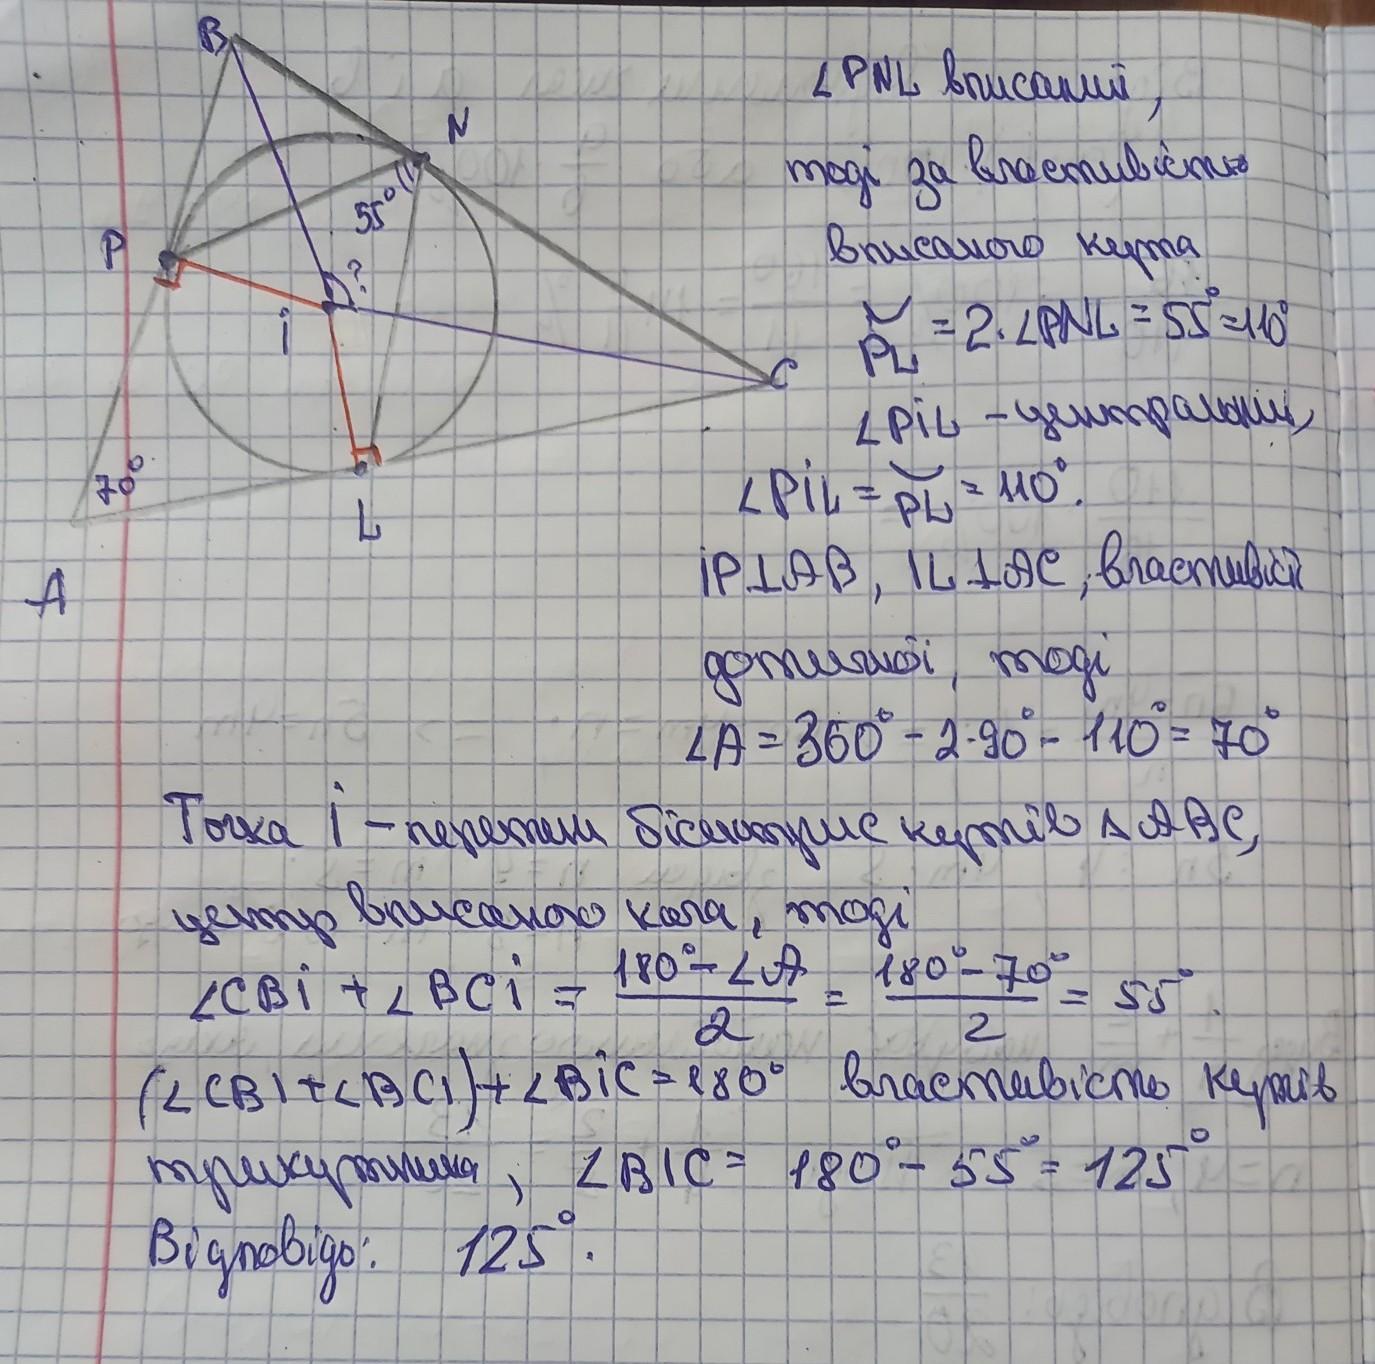 B
N
P
55°
?
i
C
70°
L
A
∠PNL вписаний,
тоді за властивістю
вписаного кута
◡PL = 2·∠PNL = 55° = 110°
∠PiL – центральний,
∠PiL = ◡PL = 110°.
iP⊥AB, IL⊥AC, властивість
дотичної, тоді
∠A = 360° – 2·90° – 110° = 70°
Точка i – перетин бісектрис кутів △ABC,
центр вписаного кола, тоді
∠CBi + ∠BCi = (180° – ∠A)/2 = (180° – 70°)/2 = 55°.
(∠CBI + ∠BCI) + ∠BiC = 180° властивість кутів
трикутника, ∠BIC = 180° – 55° = 125°
Відповідь: 125°.